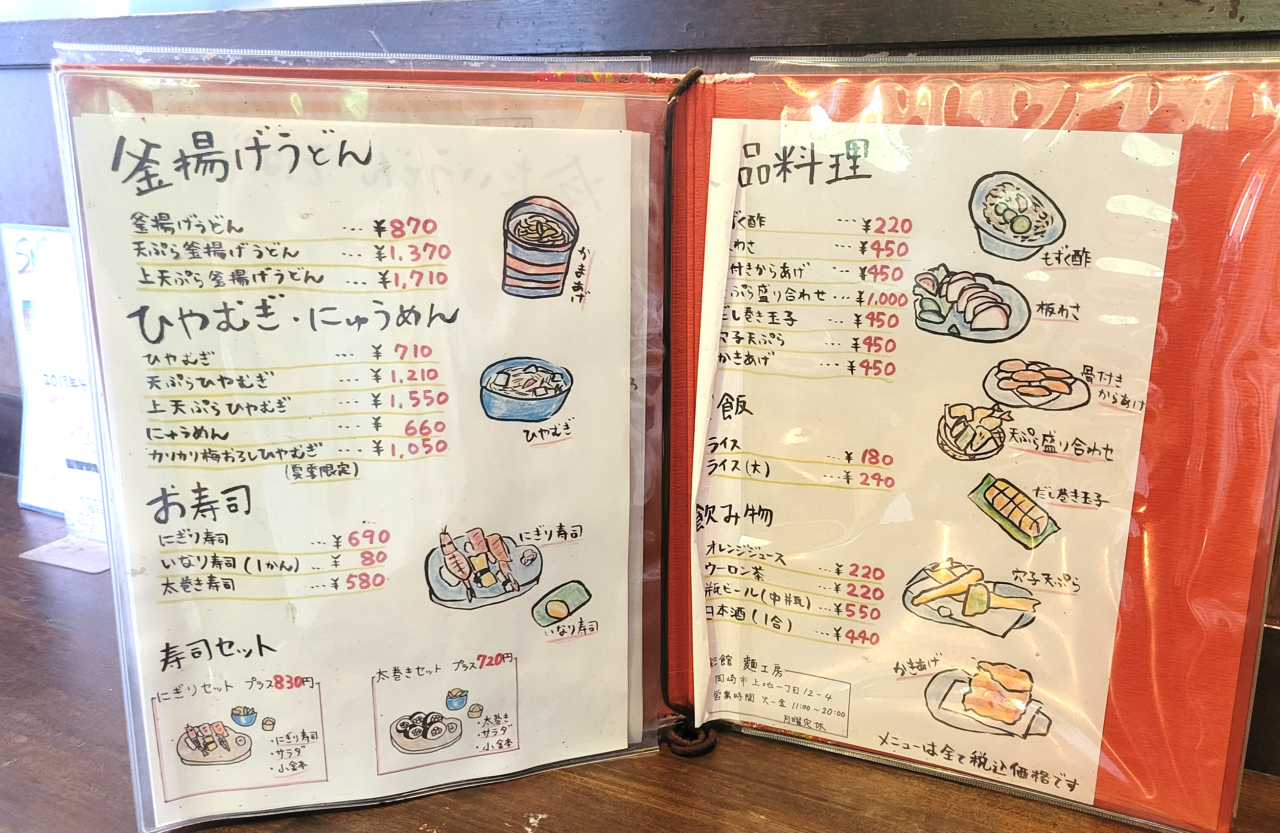 釜揚げうどん
釜揚げうどん … ¥870
天ぷら釜揚げうどん … ¥1,370
上天ぷら釜揚げうどん … ¥1,710
かまあげ
ひやむぎ・にゅうめん
ひやむぎ … ¥710
天ぷらひやむぎ … ¥1,210
上天ぷらひやむぎ … ¥1,550
にゅうめん … ¥660
カリカリ梅おろしひやむぎ … ¥1,050
(夏季限定)
ひやむぎ
お寿司
にぎり寿司 … ¥690
いなり寿司(1かん) … ¥80
太巻き寿司 … ¥580
にぎり寿司
いなり寿司
寿司セット
にぎりセット プラス830円
・にぎり寿司
・サラダ
・小鉢
太巻きセット プラス720円
・太巻き
・サラダ
・小鉢
品料理
ずく酢 … ¥220
わさ … ¥450
付きからあげ ¥450
ぷら盛り合わせ … ¥1,000
だし巻き玉子 … ¥450
穴子天ぷら … ¥450
かきあげ … ¥450
もずく酢
板わさ
骨付き
からあげ
天ぷら盛り合わせ
だし巻き玉子
穴子天ぷら
かきあげ
飯
ライス … ¥180
ライス(大) … ¥240
飲み物
オレンジジュース … ¥220
ウーロン茶 … ¥220
瓶ビール(中瓶) … ¥550
日本酒(1合) … ¥440
館 麺工房
岡崎市上地一丁目12-4
営業時間 火~金 11:00~20:00
月曜定休
メニューは全て税込価格です